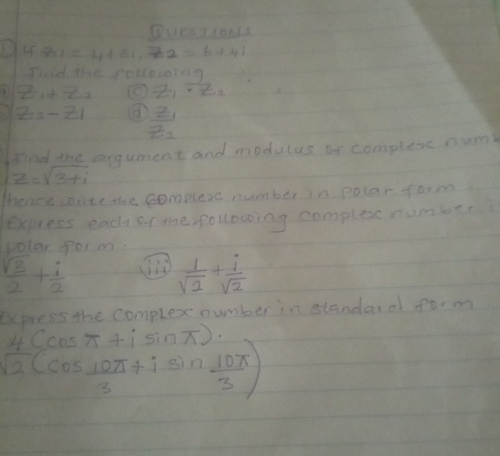 QUESTIONS
If Z1 = 4+2i, Z2 = 6+4i
find the following
Z1+Z2 (c) Z1 · Z2
Z2-Z1 (d) Z1/Z2
find the argument and modulus of complex num
Z=√3+i
hence write the complex number in polar form
express each of the following complex number i
polar form.
√3/2 + i/2 (iii) 1/√2 + i/√2
express the complex number in standard form
4(cos π + i sin π).
√2(cos 10π/3 + i sin 10π/3)